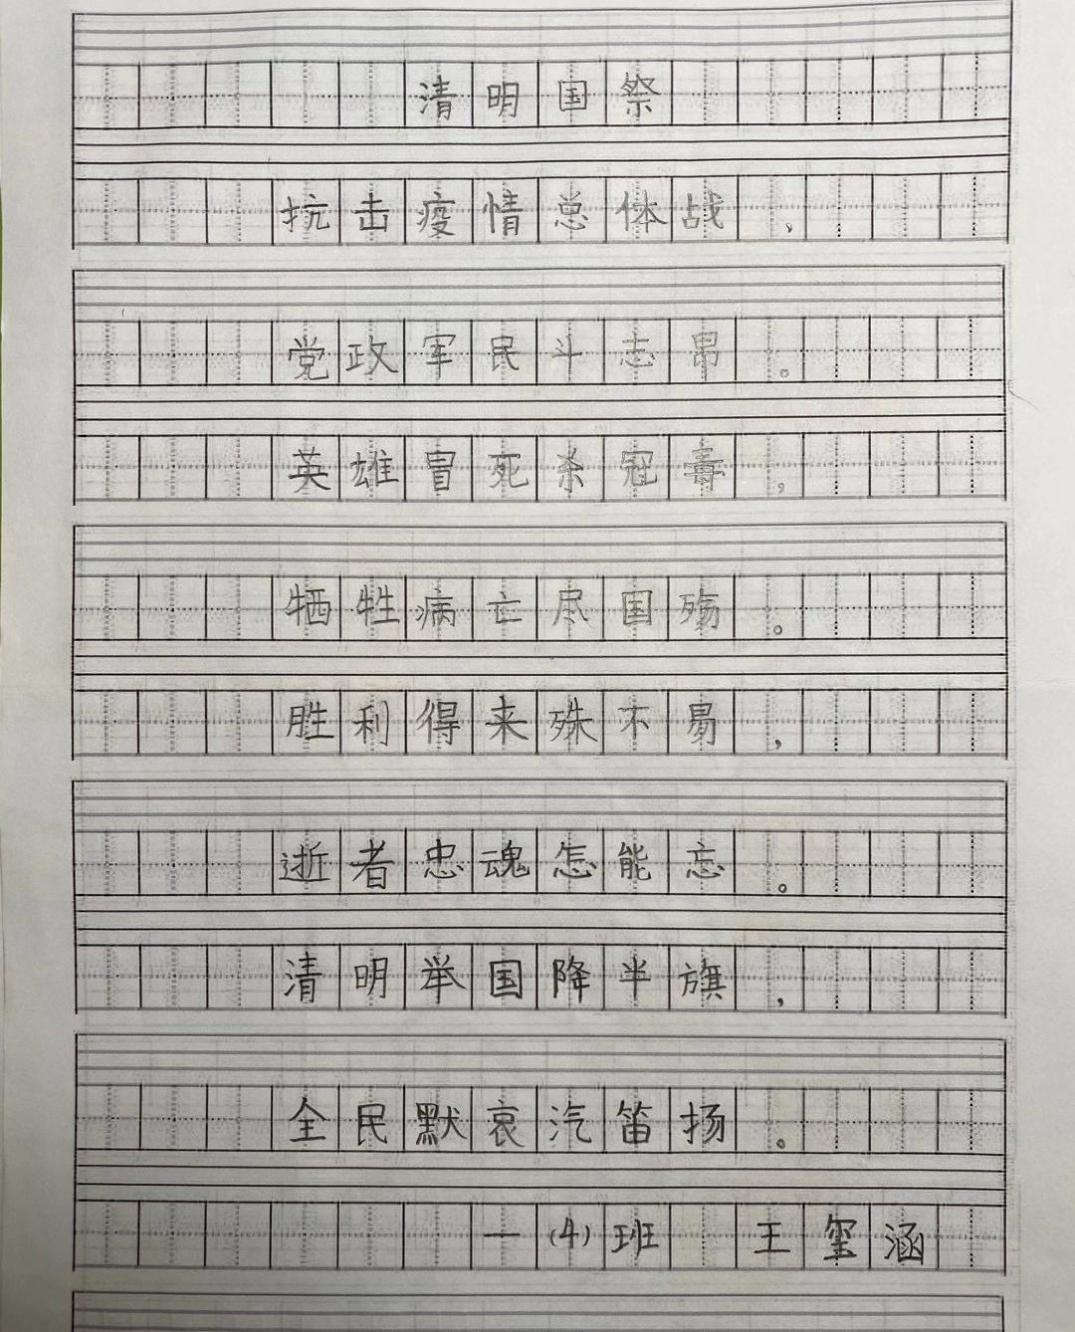 清明国祭
抗击疫情总体战,
党政军民斗志昂。
英雄冒死杀冠毒,
牺牲病亡尽国殇。
胜利得来殊不易,
逝者忠魂怎能忘。
清明举国降半旗,
全民默哀汽笛扬。
一(4)班 王玺涵